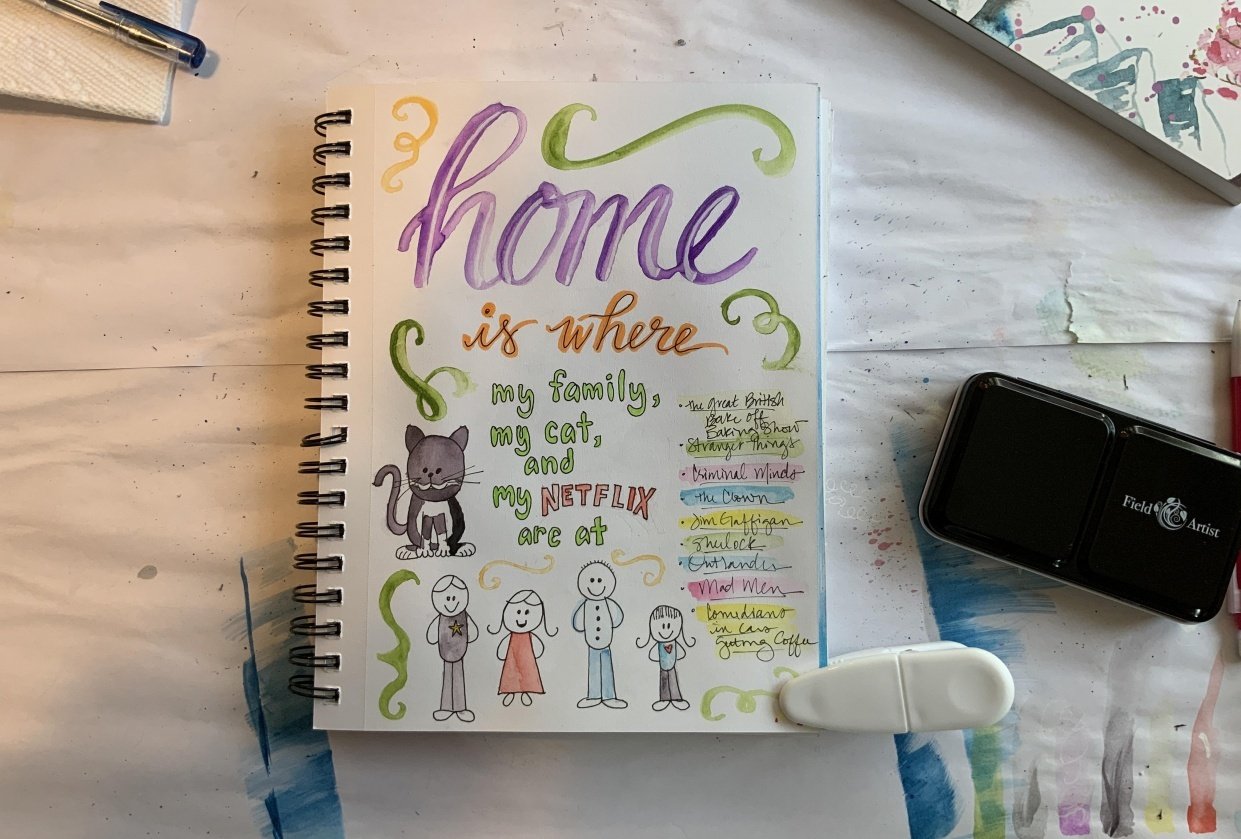 home
is where
my family,
my cat,
and
my NETFLIX
are at
• the Great British
Bake Off
Baking Show
• Stranger Things
• Criminal Minds
• the Crown
• Jim Gaffigan
• Sherlock
• Outlander
• Mad Men
• Comedians
in Cars
Getting Coffee
Field Artist